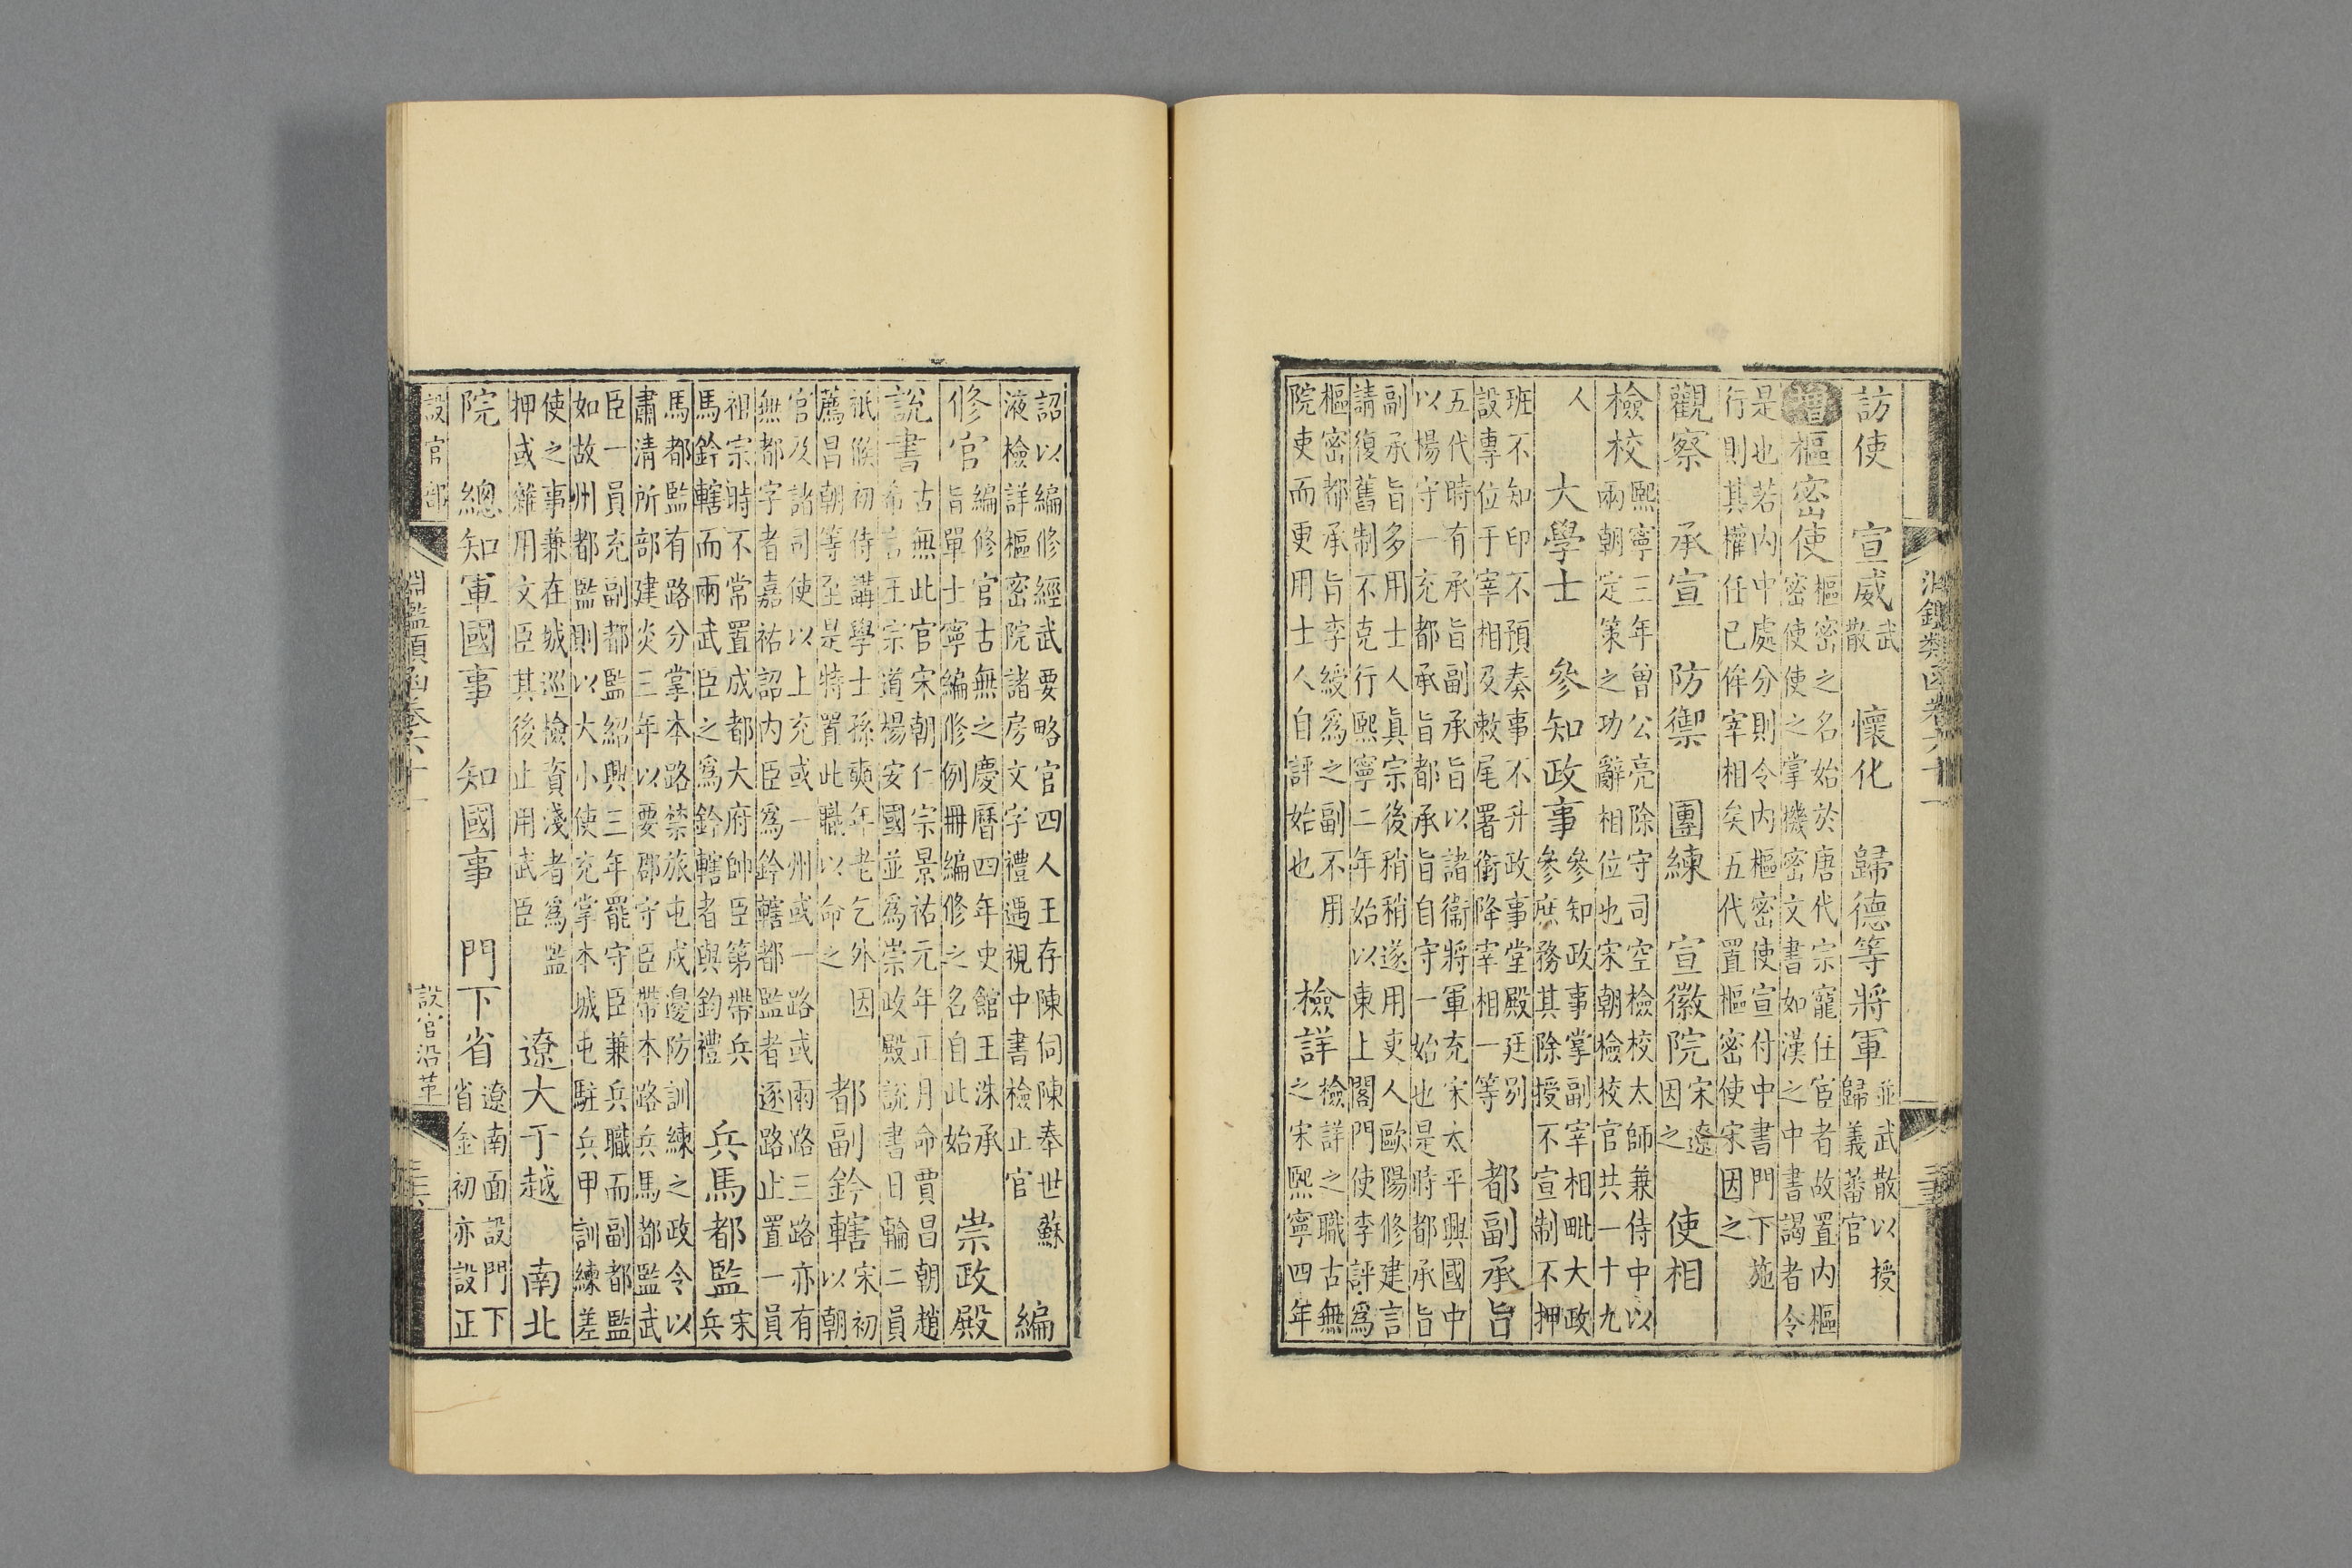 淵鑑類函卷六十一 三十五
訪使 宣威武散 懷化 歸德等將軍並武散以授歸義蕃官
增樞密使樞密之名始於唐代宗寵任宦者故置内樞密使使之掌機密文書如漢之中書謁者令
是也若内中處分則令内樞密使宣付中書門下施行則其權任已侔宰相矣五代置樞密使宋因之
觀察 承宣 防禦 團練 宣徽院宋遼因之 使相
檢校熙寧三年曾公亮除守司空檢校太師兼侍中以兩朝定策之功辭相位也宋朝檢校官共一十九
人 大學士 參知政事參知政事掌副宰相毗大政參庶務其除授不宣制不押
班不知印不預奏事不升政事堂殿廷别設專位于宰相及敕尾署銜降宰相一等 都副承旨
五代時有承旨副承旨以諸衞將軍充宋太平興國中以楊守一充都承旨都承旨自守一始也是時都承旨
副承旨多用士人眞宗後稍稍遂用吏人歐陽修建言請復舊制不克行熙寧二年始以東上閤門使李評爲
樞密都承旨李綬爲之副不用院吏而更用士人自評始也 檢詳檢詳之職古無之宋熙寧四年
詔以編修經武要略官四人王存陳侗陳奉世蘇液檢詳樞密院諸房文字禮遇視中書檢正官 編
修官編修官古無之慶曆四年史館王洙承旨單士寧編修例冊編修之名自此始 崇政殿
說書古無此官宋朝仁宗景祐元年正月命賈昌朝趙希言王宗道楊安國並爲崇政殿說書日輪二員
祇候初侍講學士孫奭年老乞外因薦昌朝等至是特置此職以命之 都副鈐轄宋初以朝
官及諸司使以上充或一州或一路或兩路三路亦有無都字者嘉祐詔内臣爲鈐轄都監者逐路止置一員
祖宗時不常置成都大府帥臣第帶兵馬鈐轄而兩武臣之爲鈐轄者與鈞禮 兵馬都監宋兵
馬都監有路分掌本路禁旅屯戍邊防訓練之政令以肅清所部建炎三年以要郡守臣帶本路兵馬都監武
臣一員充副都監紹興三年罷守臣兼兵職而副都監如故州都監則以大小使充掌本城屯駐兵甲訓練差
使之事兼在城巡檢資淺者爲監押或雜用文臣其後止用武臣 遼大于越 南北
院 總知軍國事 知國事 門下省遼南面設門下省金初亦設正
設官部 淵鑑類函卷六十一 設官沿革 三十六